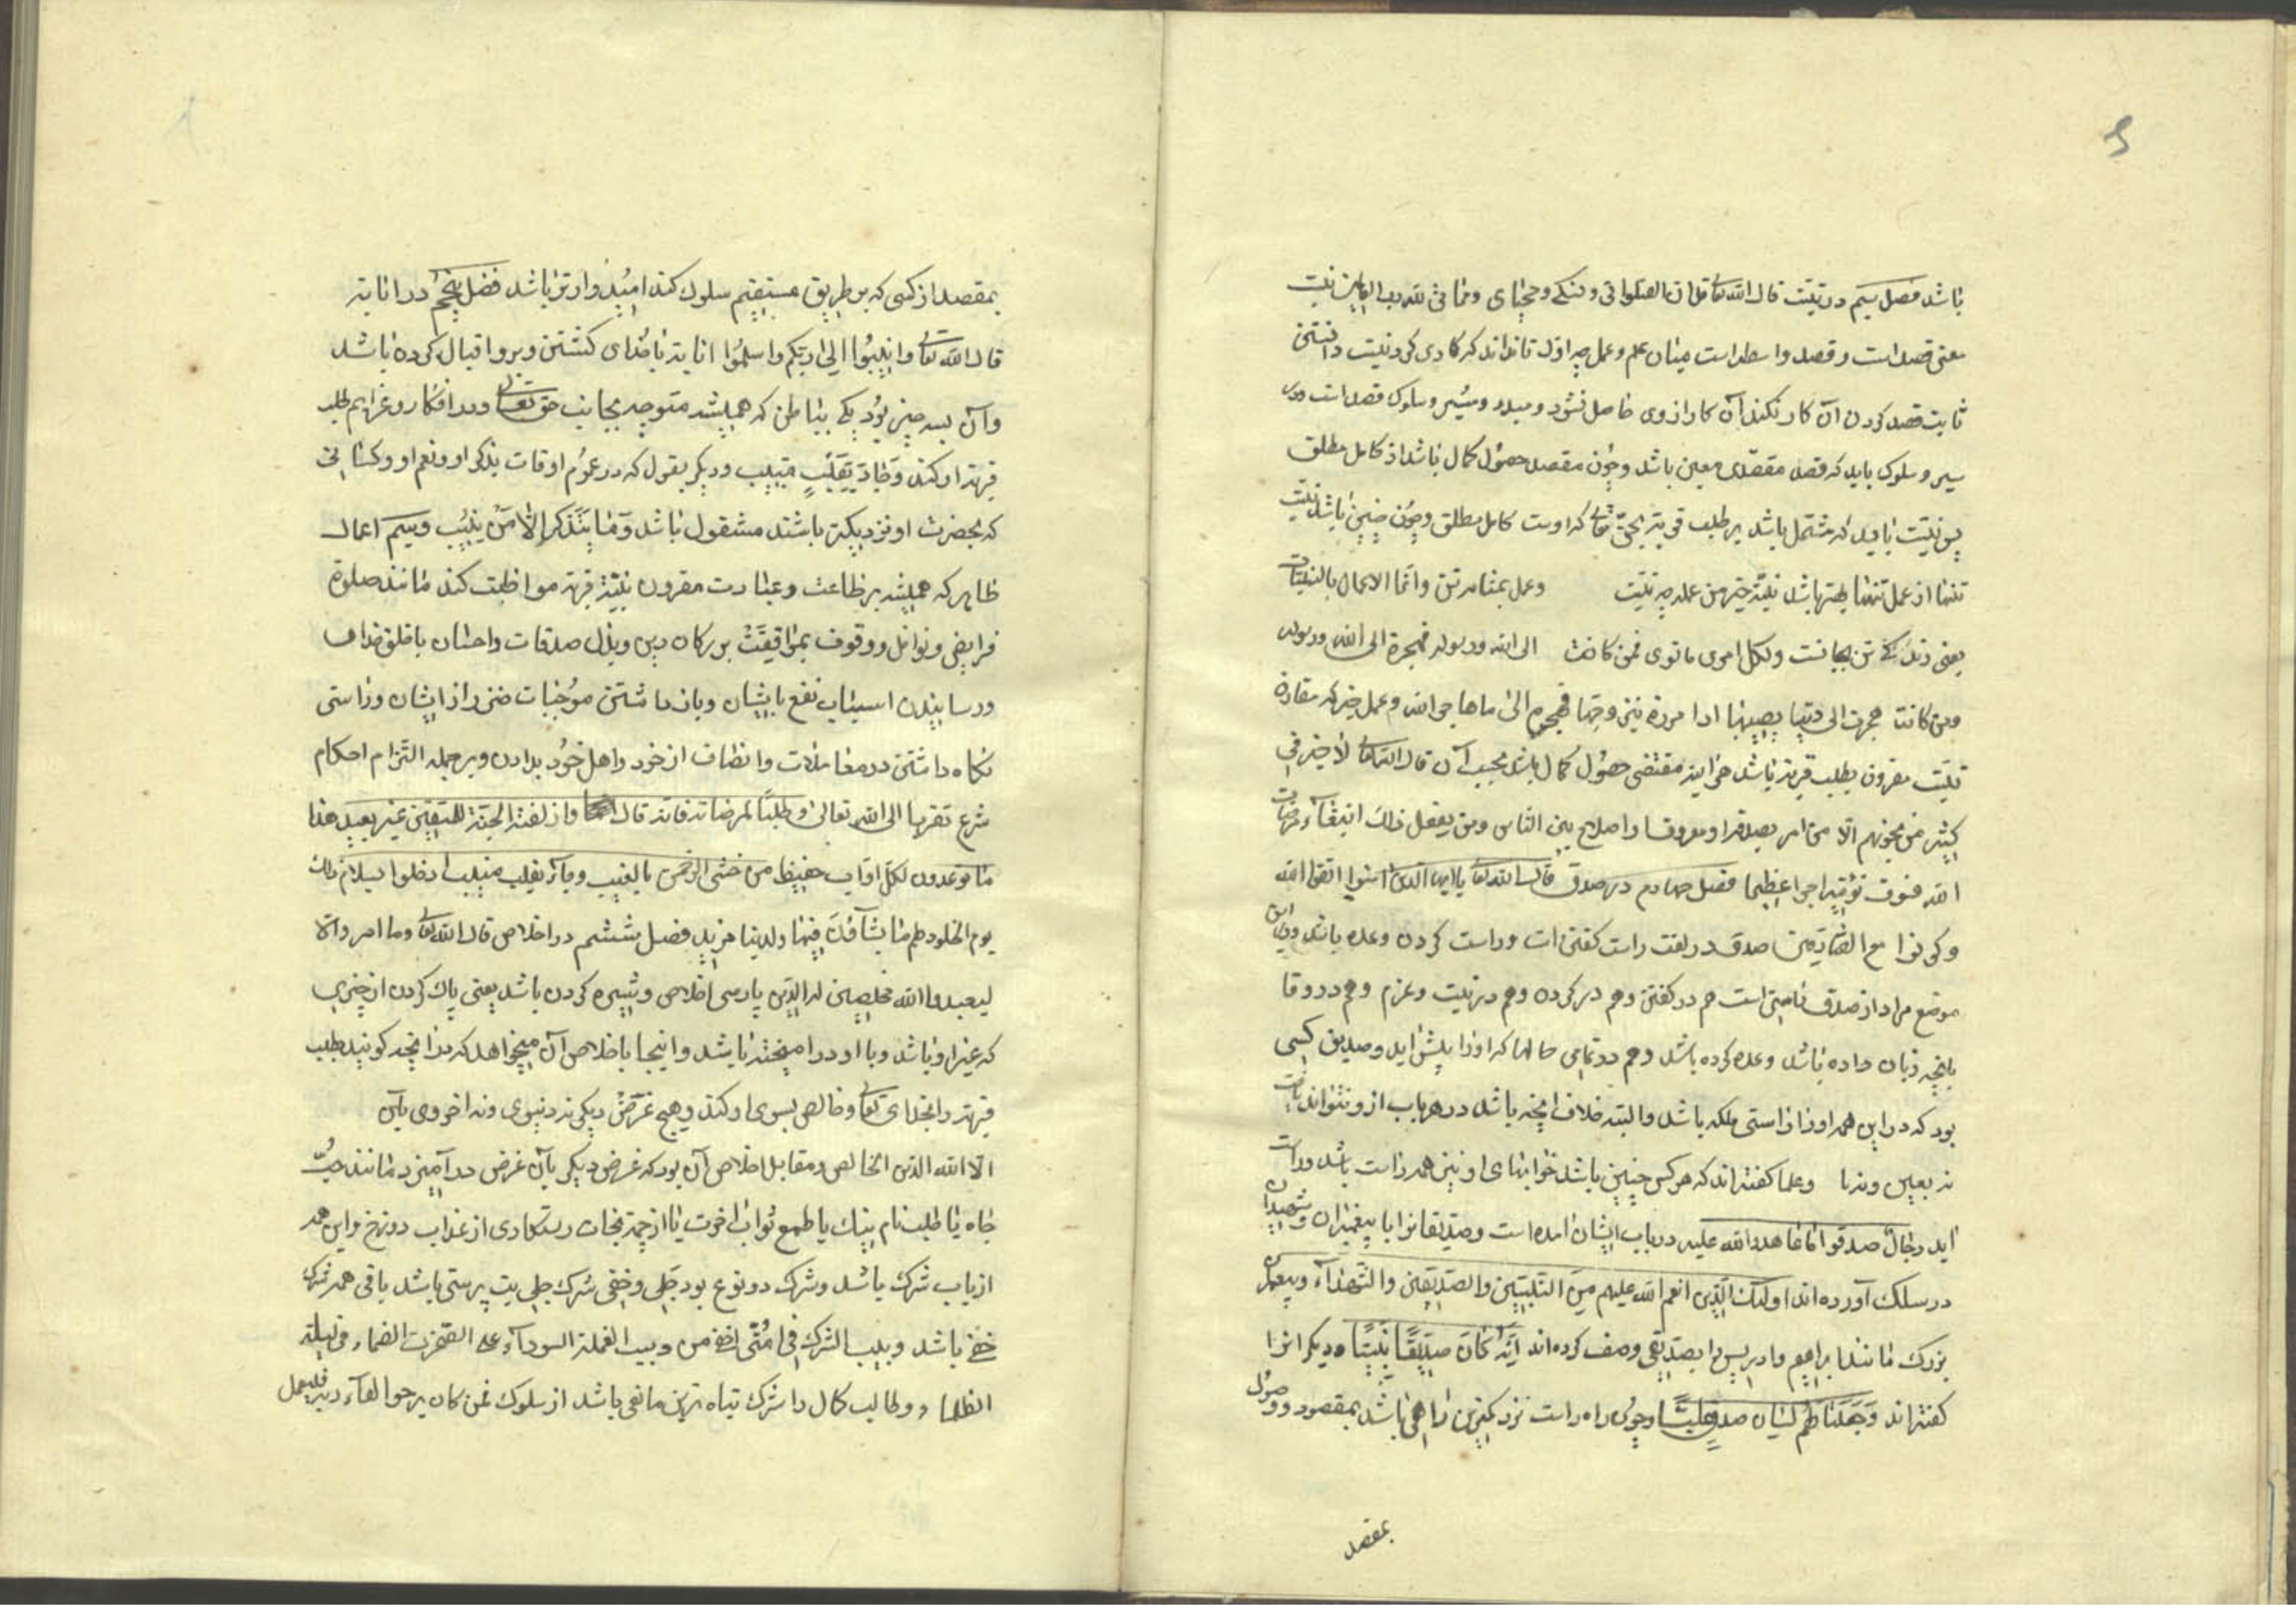 باشد فصل سیم در نیّت قال الله تعا قل ان صلواتی و نسکی و محیای و مماتی لله رب العالمین نیت
معنی قصد است و قصد واسطه است میان علم و عمل چه اوّل تا نداند که کاری کردنیست دانستن
ثابت قصد کردن آن کار نکند آن کار از وی حاصل نشود و مبدء و سیر و سلوک قصد است و در
سیر و سلوک باید که قصد مقصدی معین باشد و چون مقصد حصول کمال باشد از کامل مطلق
پس نیّت باید که مشتمل باشد بر طلب قربت بحق تعا که اوست کامل مطلق و چون چنین باشد نیّت
تنها از عمل تنها بهتر باشد نیّة خیر من عمله چه نیّت وعمل بمثابه تن وانّما الاعمال بالنیّات
یعنی زندکی تن بجانست ولکل امری ما نوی فمن کانت الی الله ورسوله فهجرة الی الله ورسوله
ومن کانت هجرت الی دنیا یصیبها او امرءة یتزوجها فهجرة الی ما هاجر الله وعمل خیر که مقارن
نیّت مقرون بطلب قربت باشد هر اینه مقتضی حصول کمال باشد بحسب آن قال الله تعا لا خیر فی
کثیر من نجویهم الّا من امر بصدقة او معروف او اصلاح بین الناس ومن یفعل ذلک ابتغاء مرضات
الله فسوف نؤتیه اجرا عظیما فصل چهارم در صدق قال الله تعا یا ایها الذین امنوا اتقوا الله
وکونوا مع الصّادقین صدق در لغت راست کفتن است و راست کردن وعده باشد و در این
موضع مراد از صدق راستی است هم در کفتن وهم در کرده وهم در نیت وعزم وهم در وفا
بانچه زبان داده باشد وعده کرده باشد وهم در تمامی حالها که او را پیش اید وصدیق کسی
بود که در این همه او را راستی ملکه باشد والبته خلاف انچه باشد در هر باب از و نتواند یافت
نه بعین ونه با وعلما کفته اند که هر کس چنین باشد خوابهای او نیز همه راست باشد وراست
اید رجال صدقوا ما عاهدوا الله علیه در باب ایشان امده است وصدّیقانرا با پیغمبران وشهیدان
در سلک آورده اند اولئک الّذین انعم الله علیهم من النّبیّین والصّدّیقین والشّهداء وپیغمبران
بزرک مانند ابراهیم وادریس را بصدّیقی وصف کرده اند اِنَّه کانَ صِدّیقًا نَبیًّا ودیکرانرا
کفته اند وَجَعَلنا لهم لسان صدق علیّا وچون راه راست نزدیکترین راهی باشد بمقصود ووصول
بمقصد
بمقصد از کسی که بر طریق مستقیم سلوک کند امیدوارتر باشد فصل پنجم در انابه
قال الله تعا وانیبوا الی ربّکم واسلموا انابه با خدای کشتن وبرو اقبال کرده باشد
وآن بسه چیز بود یکی بباطن که همیشه متوجه بجانب حق تعالی ودر افکار وعزایم طلب
قربت او کند وَجاءَ بِقَلبٍ منیب ودیکر بقول که در عموم اوقات بذکر او ونعم او وکسانی
که بحضرت او نزدیکتر باشند مشغول باشد وَما یتذکر اِلّا مَن ینیب وسیم اعمال
ظاهر که همیشه بر طاعت وعبادت مقرون بنیّة قربة مواظبت کند مانند صلوة
فرایض ونوافل ووقوف بمواقیف بزرکان دین وبذل صدقات واحسان با خلق خدای
ورسانیدن اسباب نفع بایشان وباز داشتن موجبات ضرر از ایشان وراستی
نکاه داشتن در معاملات وانصاف از خود واهل خود بدادن وبر جمله التزام احکام
شرع تقربا الی الله تعالی وطلبًا لمرضاته فانه قال الله وازلفت الجنّة للمتقین غیر بعید هذا
ما توعدون لکلّ اوّاب حفیظ من خشی الرحمن بالغیب وجاء بقلب منیب ادخلوا بسلام ذلک
یوم الخلود لهم ما یشآؤن فیها ولدینا مزید فصل ششم در اخلاص قال الله تعا وما امروا الّا
لیعبدوا الله مخلصین له الدّین پارسی اخلاص ویژه کردن باشد یعنی پاک کردن از چیزی
که غیر او باشد وبا او در امیخته باشد واینجا باخلاص آن میخواهد که هر انچه کوید بطلب
قربت راه خدای تعا وخالص بسوی او کند وهیچ غرض دیکر نه دنیوی ونه اخروی بآن
الا لله الدّین الخالص ومقابل اخلاص آن بود که غرض دیکر بآن غرض در آمیزد مانند حبّ
جاه یا طلب نام نیک یا طمع ثواب اخرت یا از جهة نجات ورستکاری از عذاب دوزخ واین همه
از باب شرک باشد وشرک دو نوع بود جلی وخفی شرک جلی بت پرستی باشد باقی همه شرک
خفی باشد وبیب الشرک فی امّتی اخفی من دبیب النملة السودآء علی الصّخرة الصمّاء فی لیلة
الظلماء وطالب کمال را شرک تباه ترین مانعی باشد از سلوک فمن کان یرجوا لقآء ربّه فلیعمل